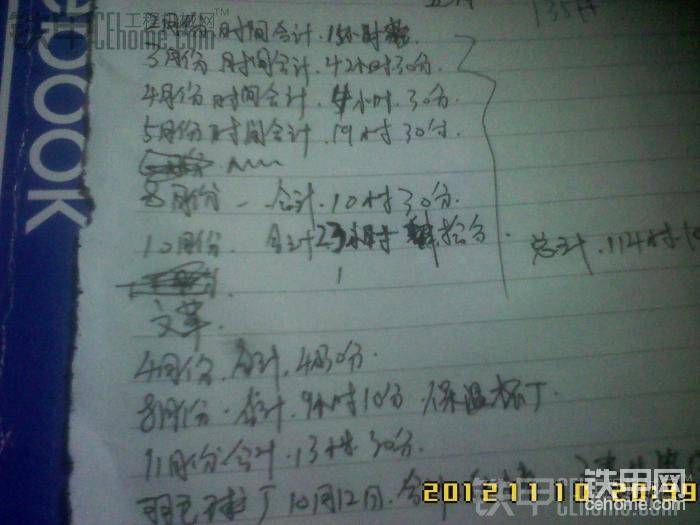 ebook
135
时间合计.
3月份 时间合计.42小时30分.
4月份 时间合计. 小时.30分.
5月份 时间合计.19时30分.
8月份 - 合计.10时30分.
10月份. 合计23小时 拾分.
总计.114时.10
1
文革.
4月份.合计.4时30分.
8月份.合计.9小时10分.保温杯丁.
11月份合计.13时.30分.
羽毛球丁10月12日.合计
铁甲 工程机械网
CEhome.com
铁甲网
2012 11 10 20:39